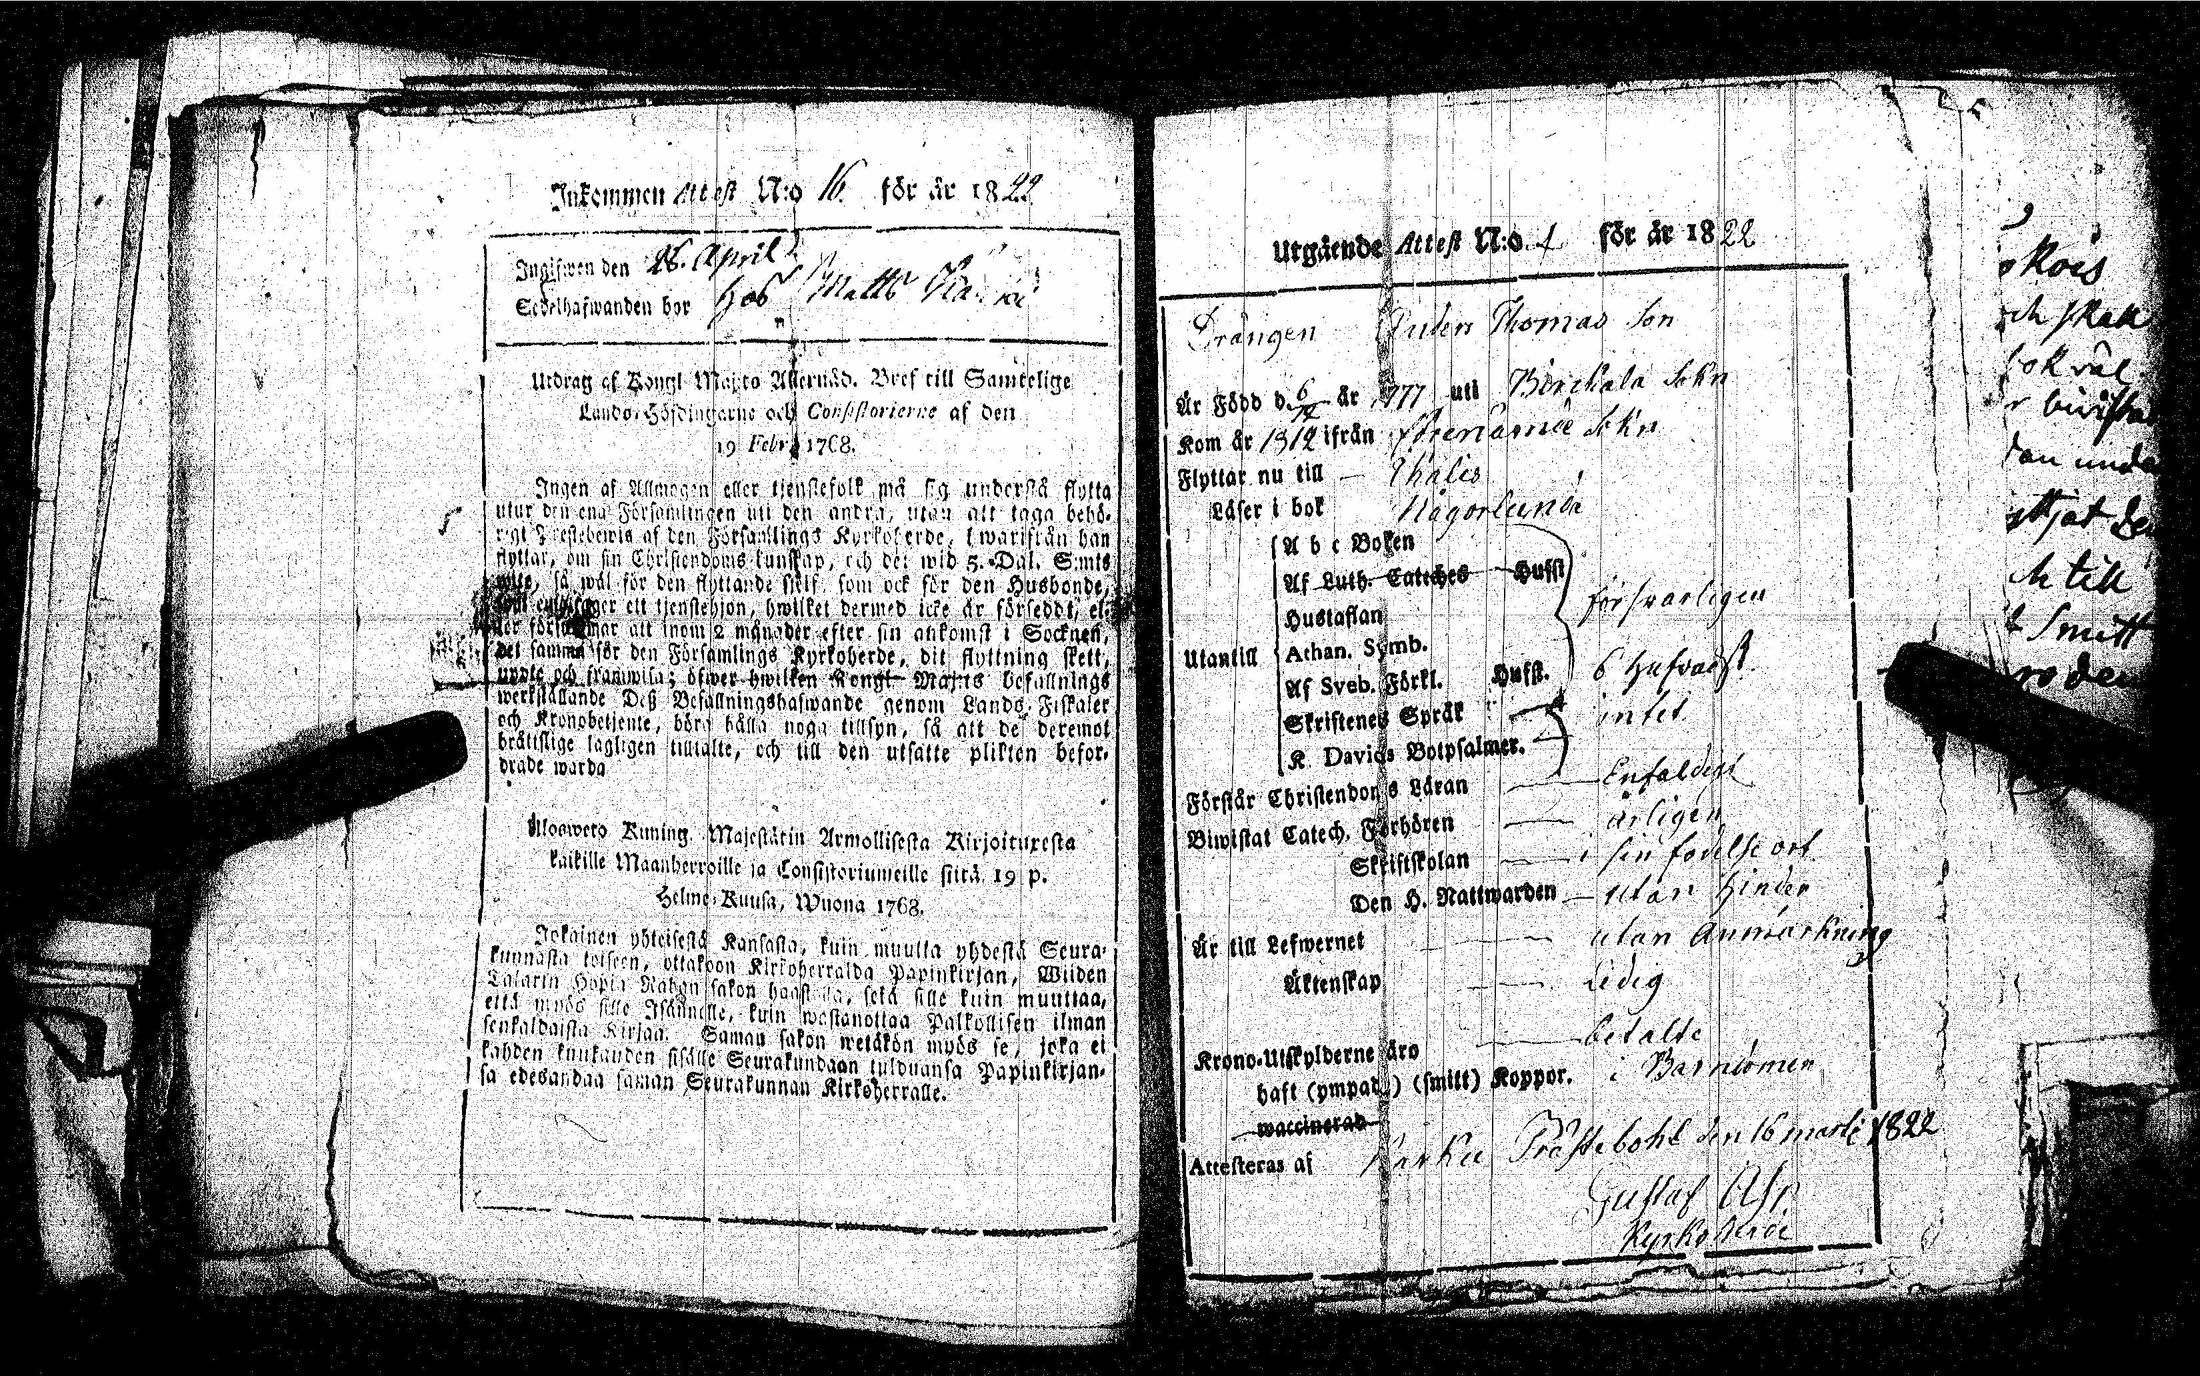 Inkommen Attest N:o 16. för år 1822
Ingifwen den 26. April
Sedelhafwanden bor hos Matts
Utdrag af Kongl Maj:ts Allernåd. Bref till Samtelige
Lands-Höfdingarne och Consistorierne af den
19 Febr. 1768.
Ingen af Allmogen eller tjenstefolk må sig understå flytta
utur den ena Församlingen uti den andra, utan att taga behö-
rigt Prestebewis af den Församlings Kyrkoherde, hwarifrån han
flyttar, om sin Christendoms kunskap, och det wid 5. Dal. S:mts
wite, så wäl för den flyttande sielf som ock för den Husbonde,
som emottager ett tjenstehjon, hwilket dermed icke är försedt, el-
ler försummar att inom 2 månader efter sin ankomst i Socknen,
det samma för den Församlings Kyrkoherde, dit flyttning skett,
uppte och framwisa; öfwer hwilken Kongl Maj:ts befallnings
werkställande Deß Befallningshafwande genom Lands-Fiskaler
och Kronobetjente, böra hålla noga tillsyn, så att de deremot
bråttslige lagligen tilltalte, och till den utsatte plikten befor-
drade warda
Uloswetv Kuning. Majestätin Armollisesta Kirjoituxesta
kaikille Maanherroille ja Consistoriumeille siitä 19 p.
Helme-Kuusa, Wuona 1768.
Jokainen yhteisestä Kansasta, kuin muutta yhdestä Seura-
kunnasta toiseen, ottakoon Kirkoherralda Papinkirjan, Wiiden
Talarin Hopia Rahan sakon haastolla, sekä sille kuin muuttaa,
että myös sille Isännelle, kuin wastanottaa Palkollisen ilman
senkaldaista Kirjaa. Saman sakon wetäkön myös se, joka ei
kahden kuukauden sisälle Seurakundaan tulduansa Papinkirjan-
sa edesandaa saman Seurakunnan Kirkoherralle.
Utgående Attest N:o 4 för år 1822
Drängen Anders Thomas Son
Är Född d. 6/12 år 1777 uti Birckala Sokn
Kom år 1812 ifrån Sokn
Flyttar nu till — Thalis
Läser i bok Någorlunda
A b c Boken
Af Luth. Cateches Hufst
Hustaflan försvarligen
Athan. Symb.
Utantill
Af Sveb. Förkl. Hufst. 6 Hufvudst.
Skriftenes Språk intet
K. Davids Botpsalmer.
Förstår Christendoms Läran — Enfaldigt
Biwistat Catech. Förhören — årligen
Skriftskolan — i sin födelse ort
Den H. Nattwarden — utan hinder
Är till Lefwernet — utan Anmärkning
Äktenskap — Ledig
Krono-Utskylderne äro — betalte
haft (ympade) (smitt) Koppor. i Barndomen
waccinerad
Attesteras af Karku Prästebohl den 16 martii 1822
Gustaf
Kyrkoherde